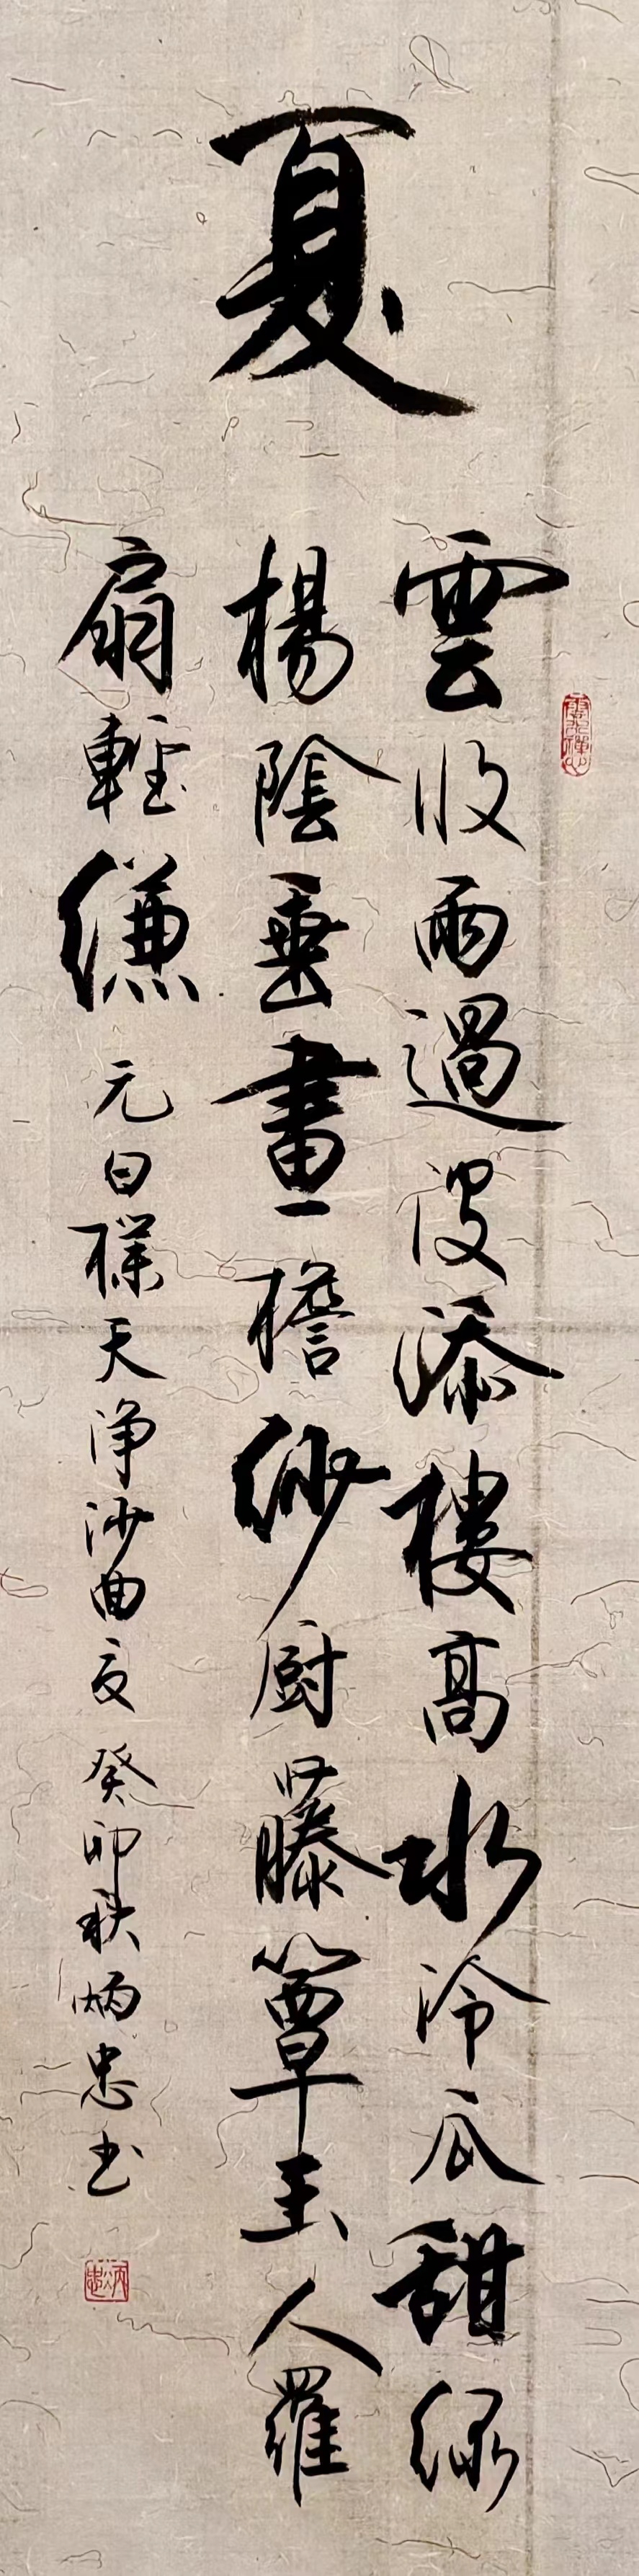 夏
雲收雨過波添樓高水冷瓜甜綠
楊陰垂畫檐紗厨藤簟玉人羅
扇輕縑
元白樸天净沙曲夏 癸卯秋炳忠书
炳忠